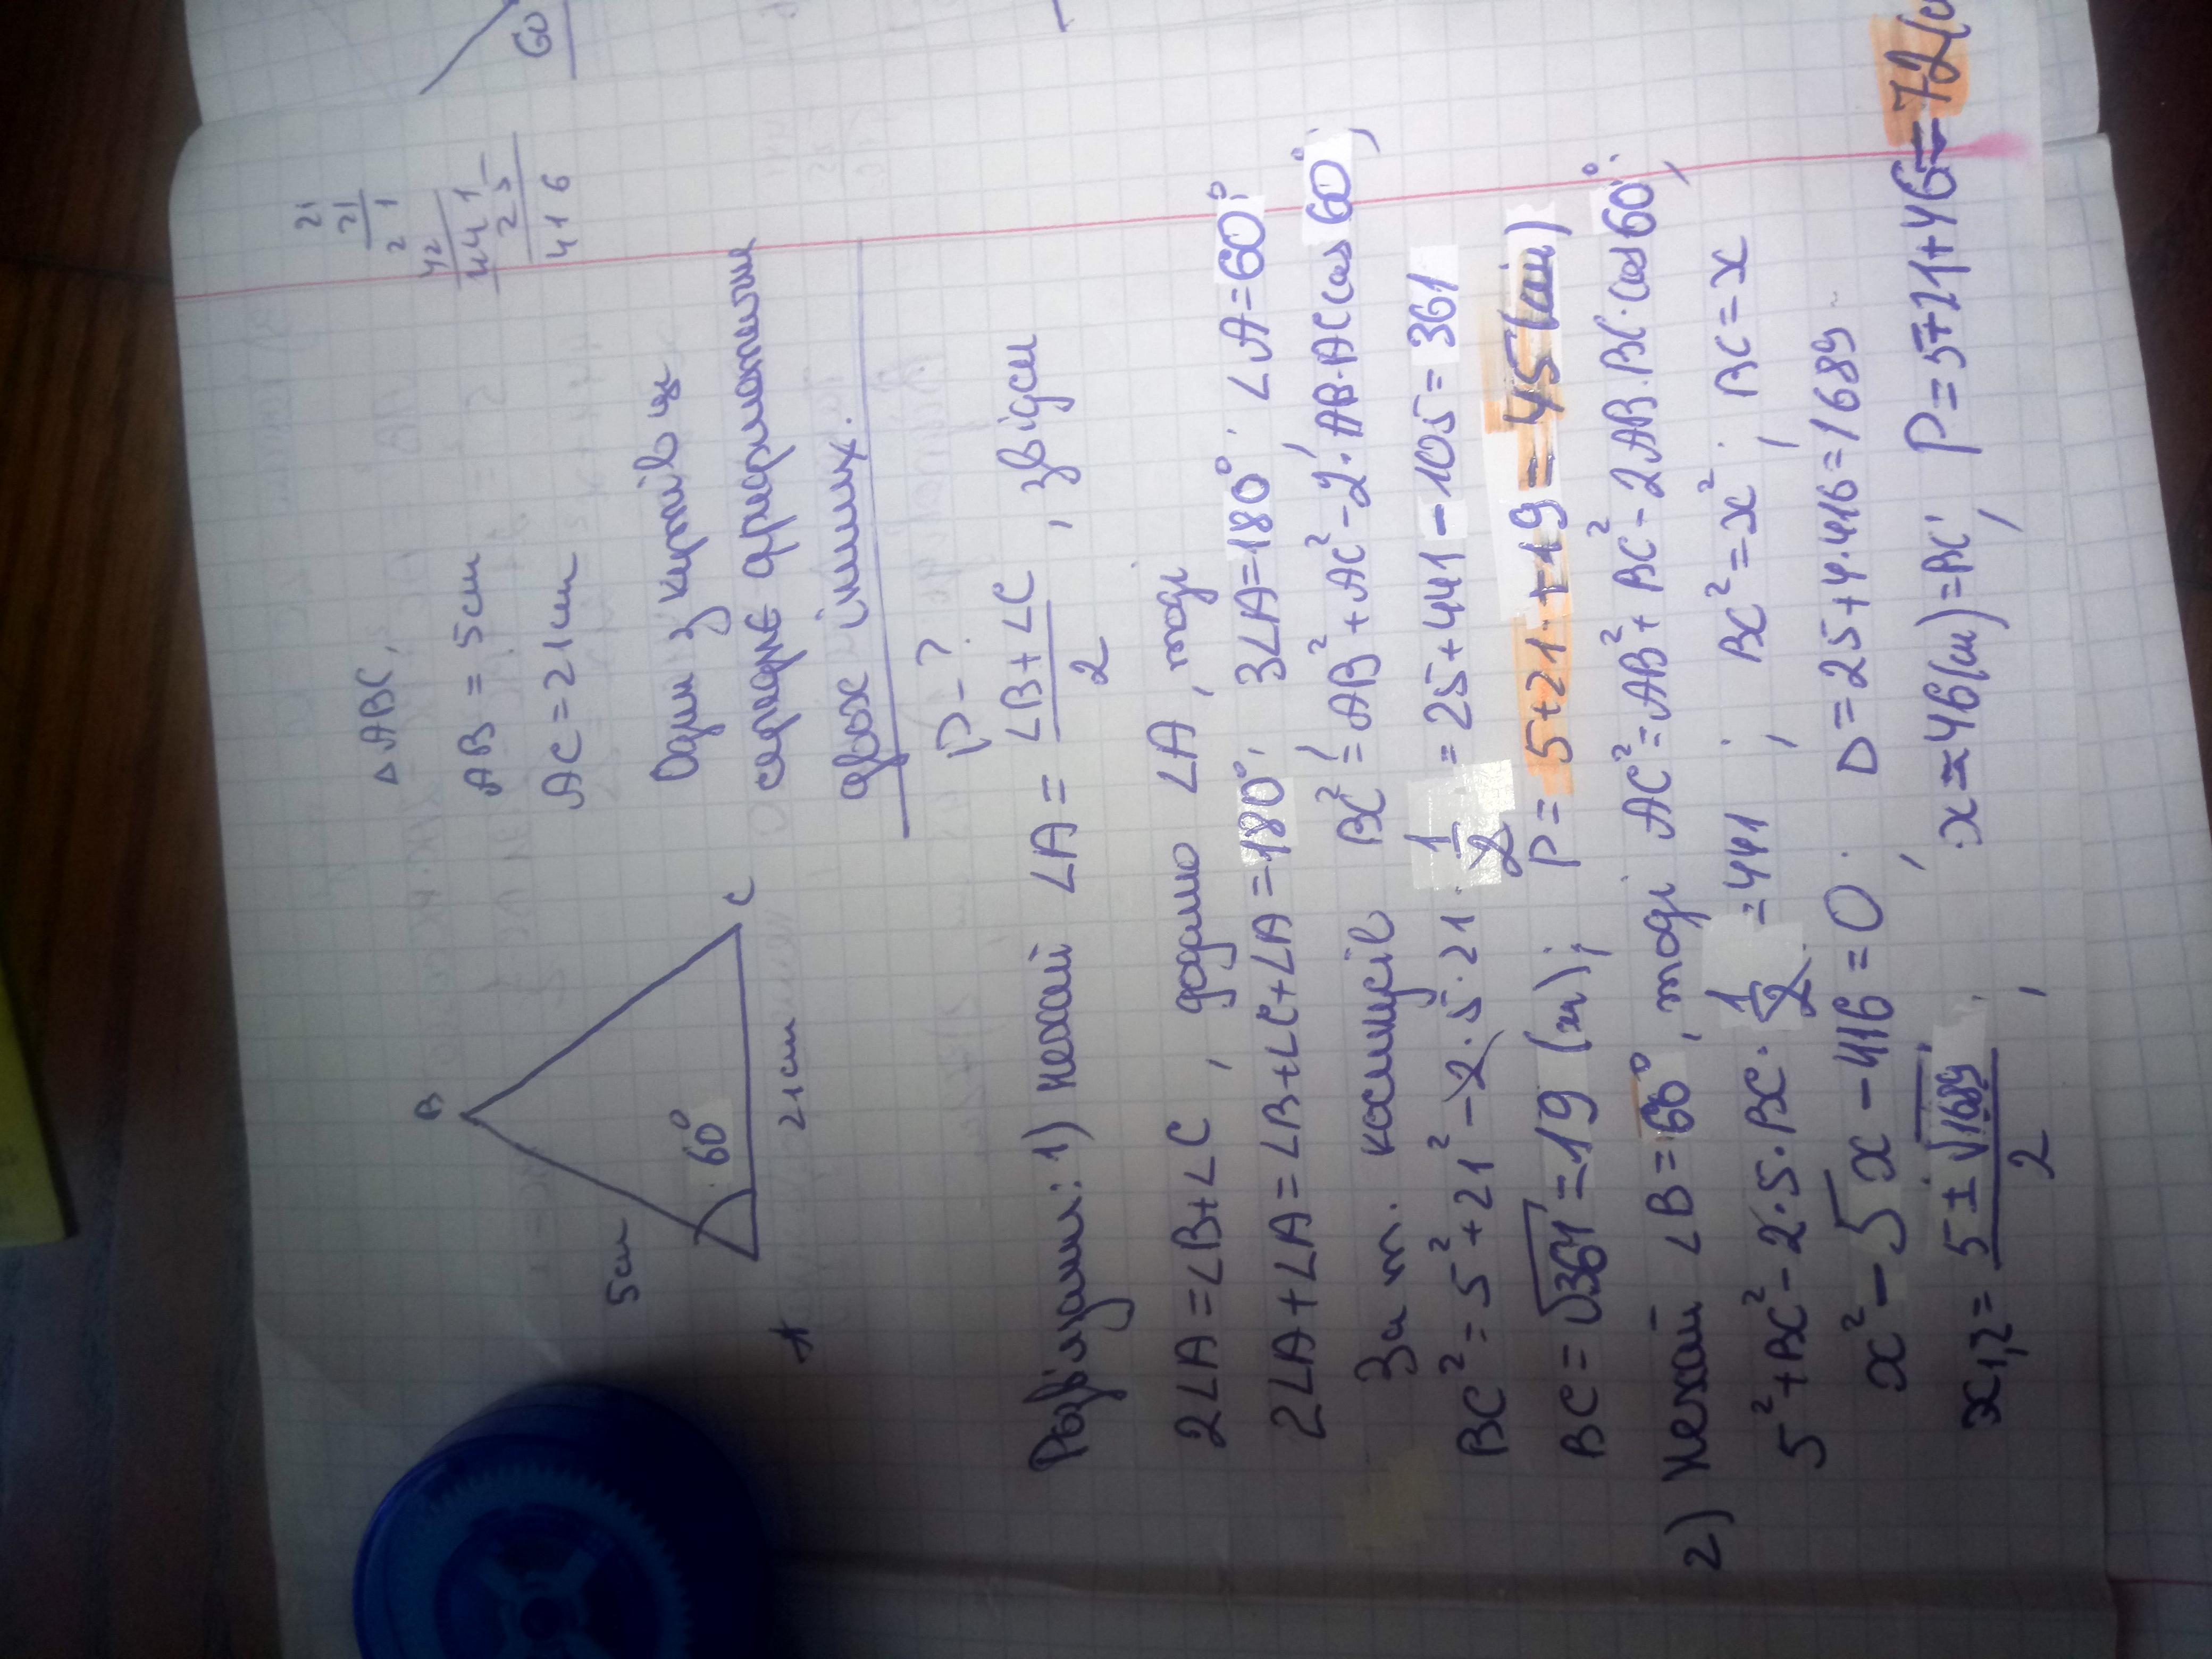 B
5см
60°
A
21см
C
△ABC,
AB = 5см
AC = 21см
Один з кутків це
середнє арифметичне
двох інших.
P - ?
21
21
21
42
441
25
416
60
Розв'язання: 1) Нехай ∠A = (∠B+∠C)/2, звідси
2∠A = ∠B+∠C, додамо ∠A, тоді
2∠A+∠A = ∠B+∠C+∠A = 180°; 3∠A = 180°; ∠A = 60°;
За т. косинусів BC² = AB² + AC² - 2·AB·AC cos 60°;
BC² = 5² + 21² - 2·5·21·1/2 = 25 + 441 - 105 = 361
BC = √361 = 19 (см); P = 5+21+19 = 45 (см)
2) Нехай ∠B = 60°, тоді AC² = AB² + BC² - 2AB·BC·cos 60°;
5² + BC² - 2·5·BC·1/2 = 441; BC² = x²; BC = x
x² - 5x - 416 = 0; D = 25 + 4·416 = 1689
x1,2 = (5 ± √1689)/2; x = 46 (см) = BC; P = 5+21+46 = 72 (